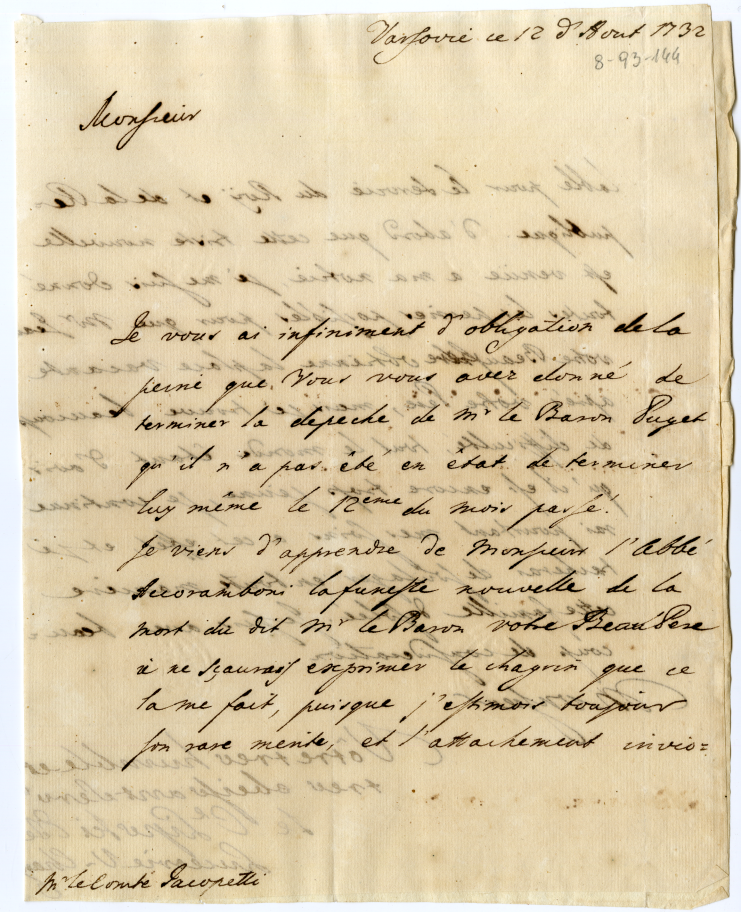 Varsovie ce 12 d'Aout 1732
8-93-144
Monsieur
Je vous ai infiniment d'obligation de la
peine que Vous vous avez donné de
terminer la depeche de Mr le Baron Puget
qu'il n'a pas été en état de terminer
luy même le 12eme du mois passé.
Je viens d'apprendre de Monsieur l'Abbé
Accoramboni la funeste nouvelle de la
mort du dit Mr le Baron votre Beau Pere
je ne sçaurais exprimer le chagrin que ce
la me fait, puisque j'estimois toujour
son rare merite, et l'attachement invio=
Mr le Comte Jacopetti